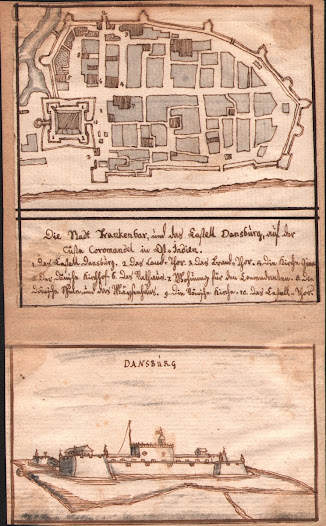 Die Stadt Trankenbar, und das Castell Dansburg, auf der
Cüste Coromandel in Ost-Indien.
1. das Castell Dansburg. 2. das Land-Thor. 3. das Brand-Thor. 4. die Kirche
der Dänische Kirchhof. 6. das Rathaus. 7. Wohnung für den Commendanten. 8. die
Dänische Schule, und das Waysenhaus. 9. die Dänische Kirche. 10. das Castell-Thor.
DANSBURG